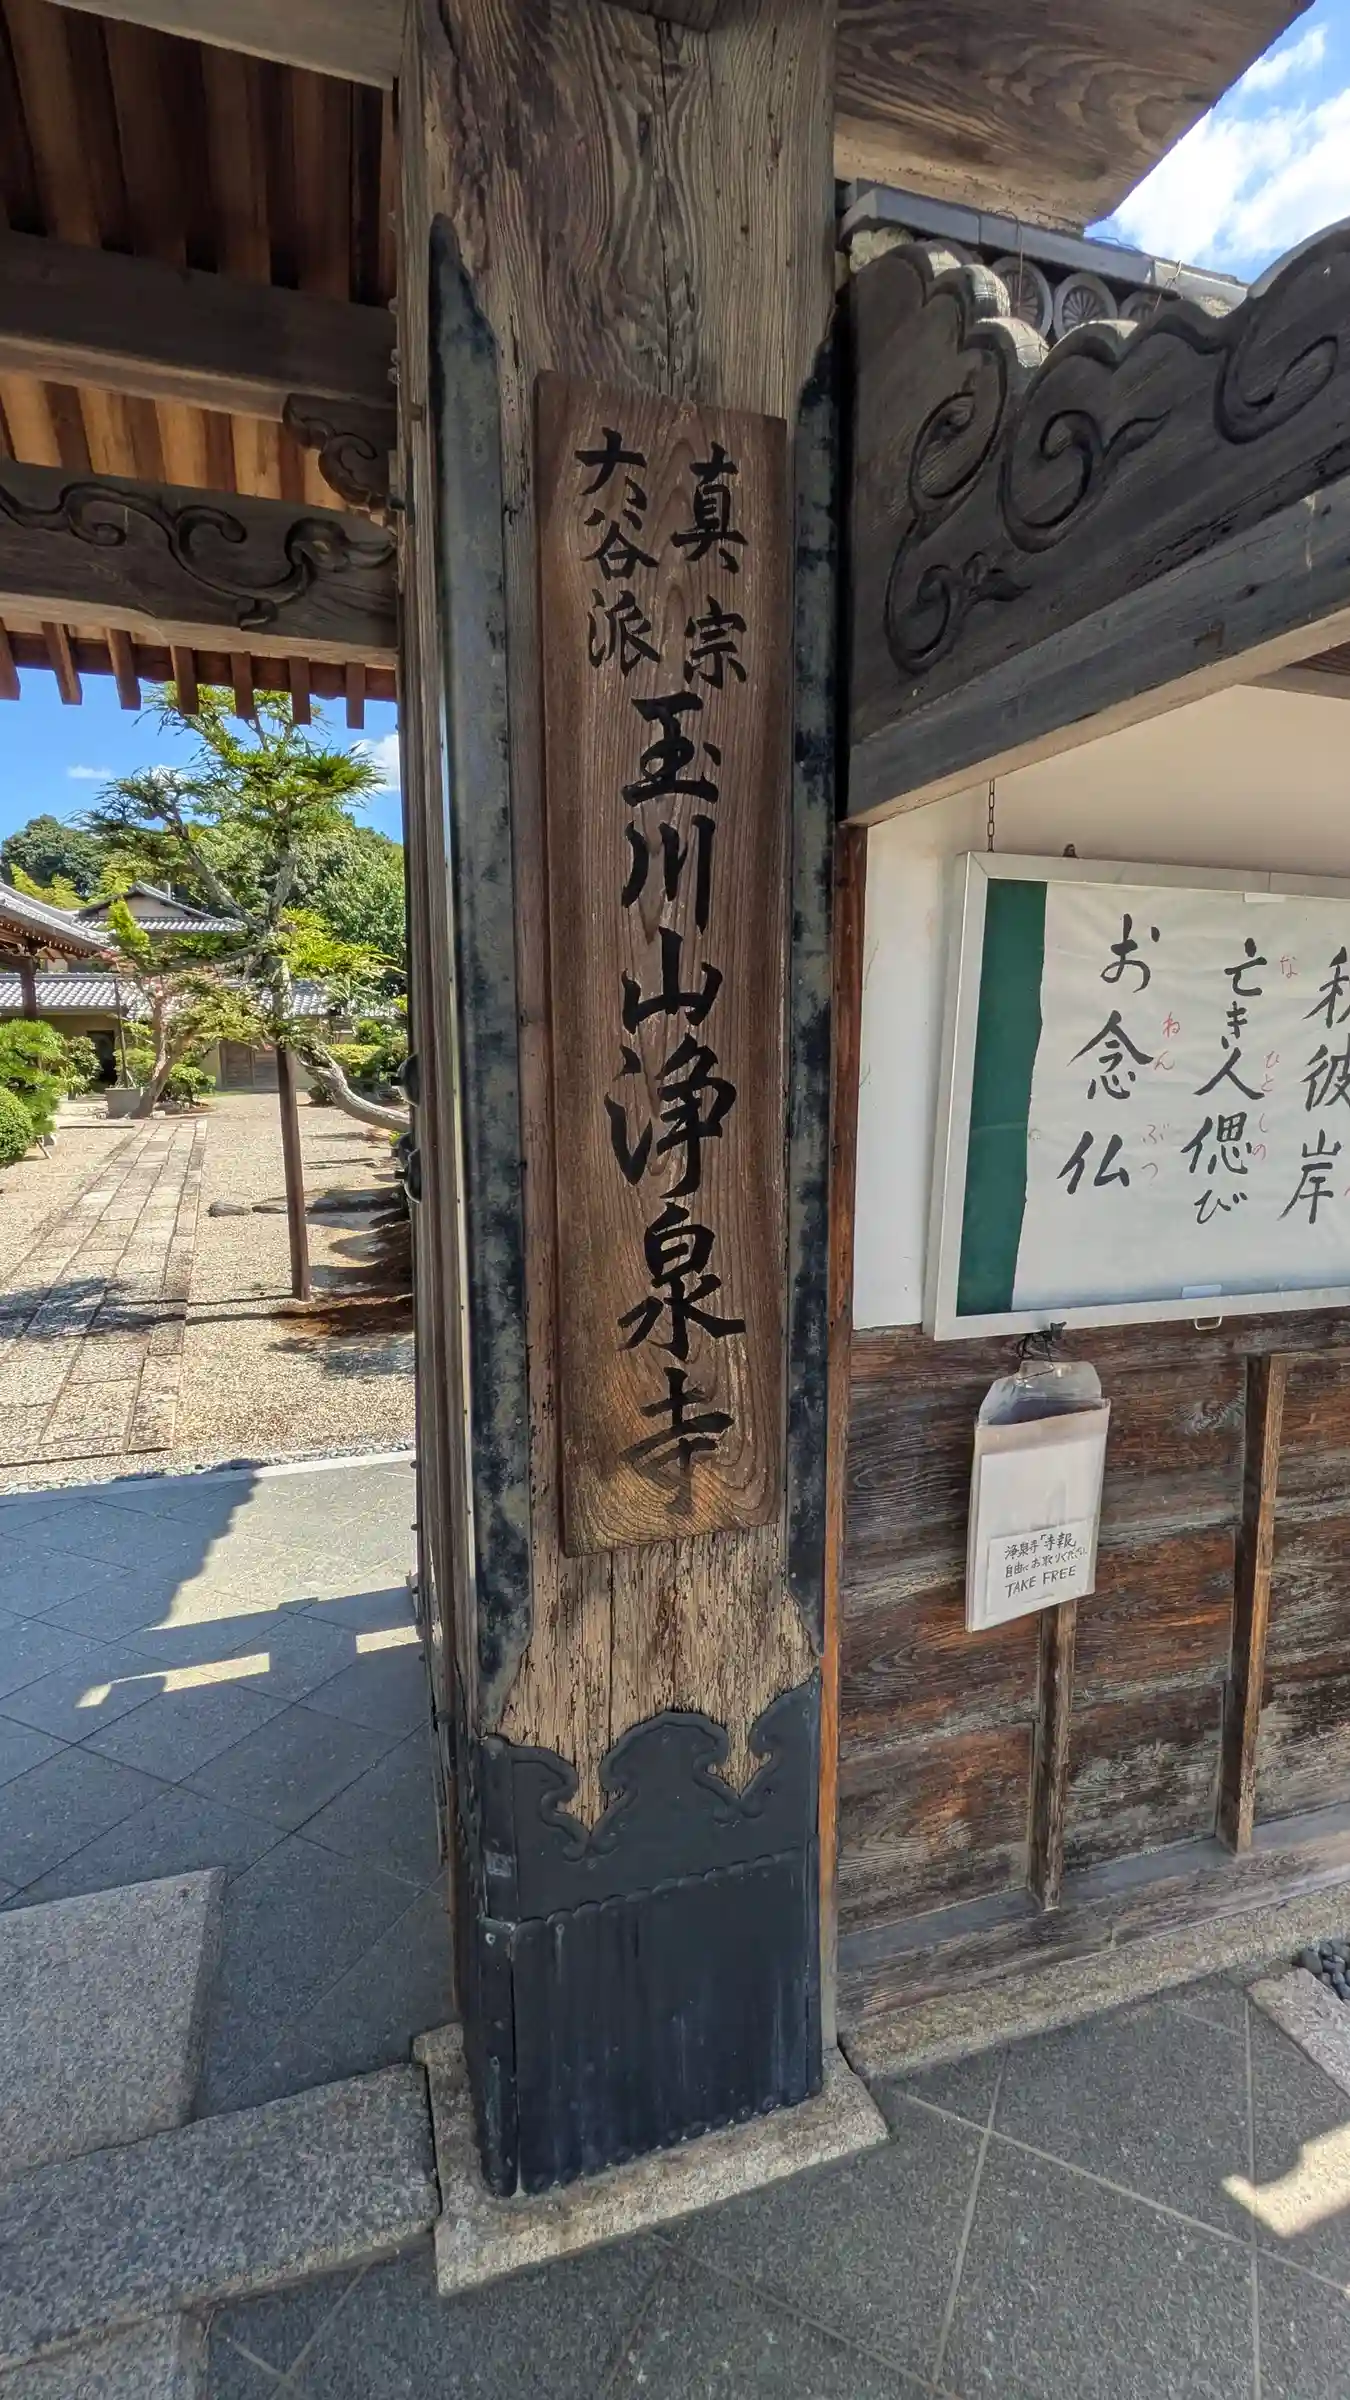 真宗
大谷派
玉川山浄泉寺
秋彼岸
亡き人偲び
な
ひと
しの
お念仏
ねん
ぶつ
浄泉寺「寺報」
自由にお取りください
TAKE FREE